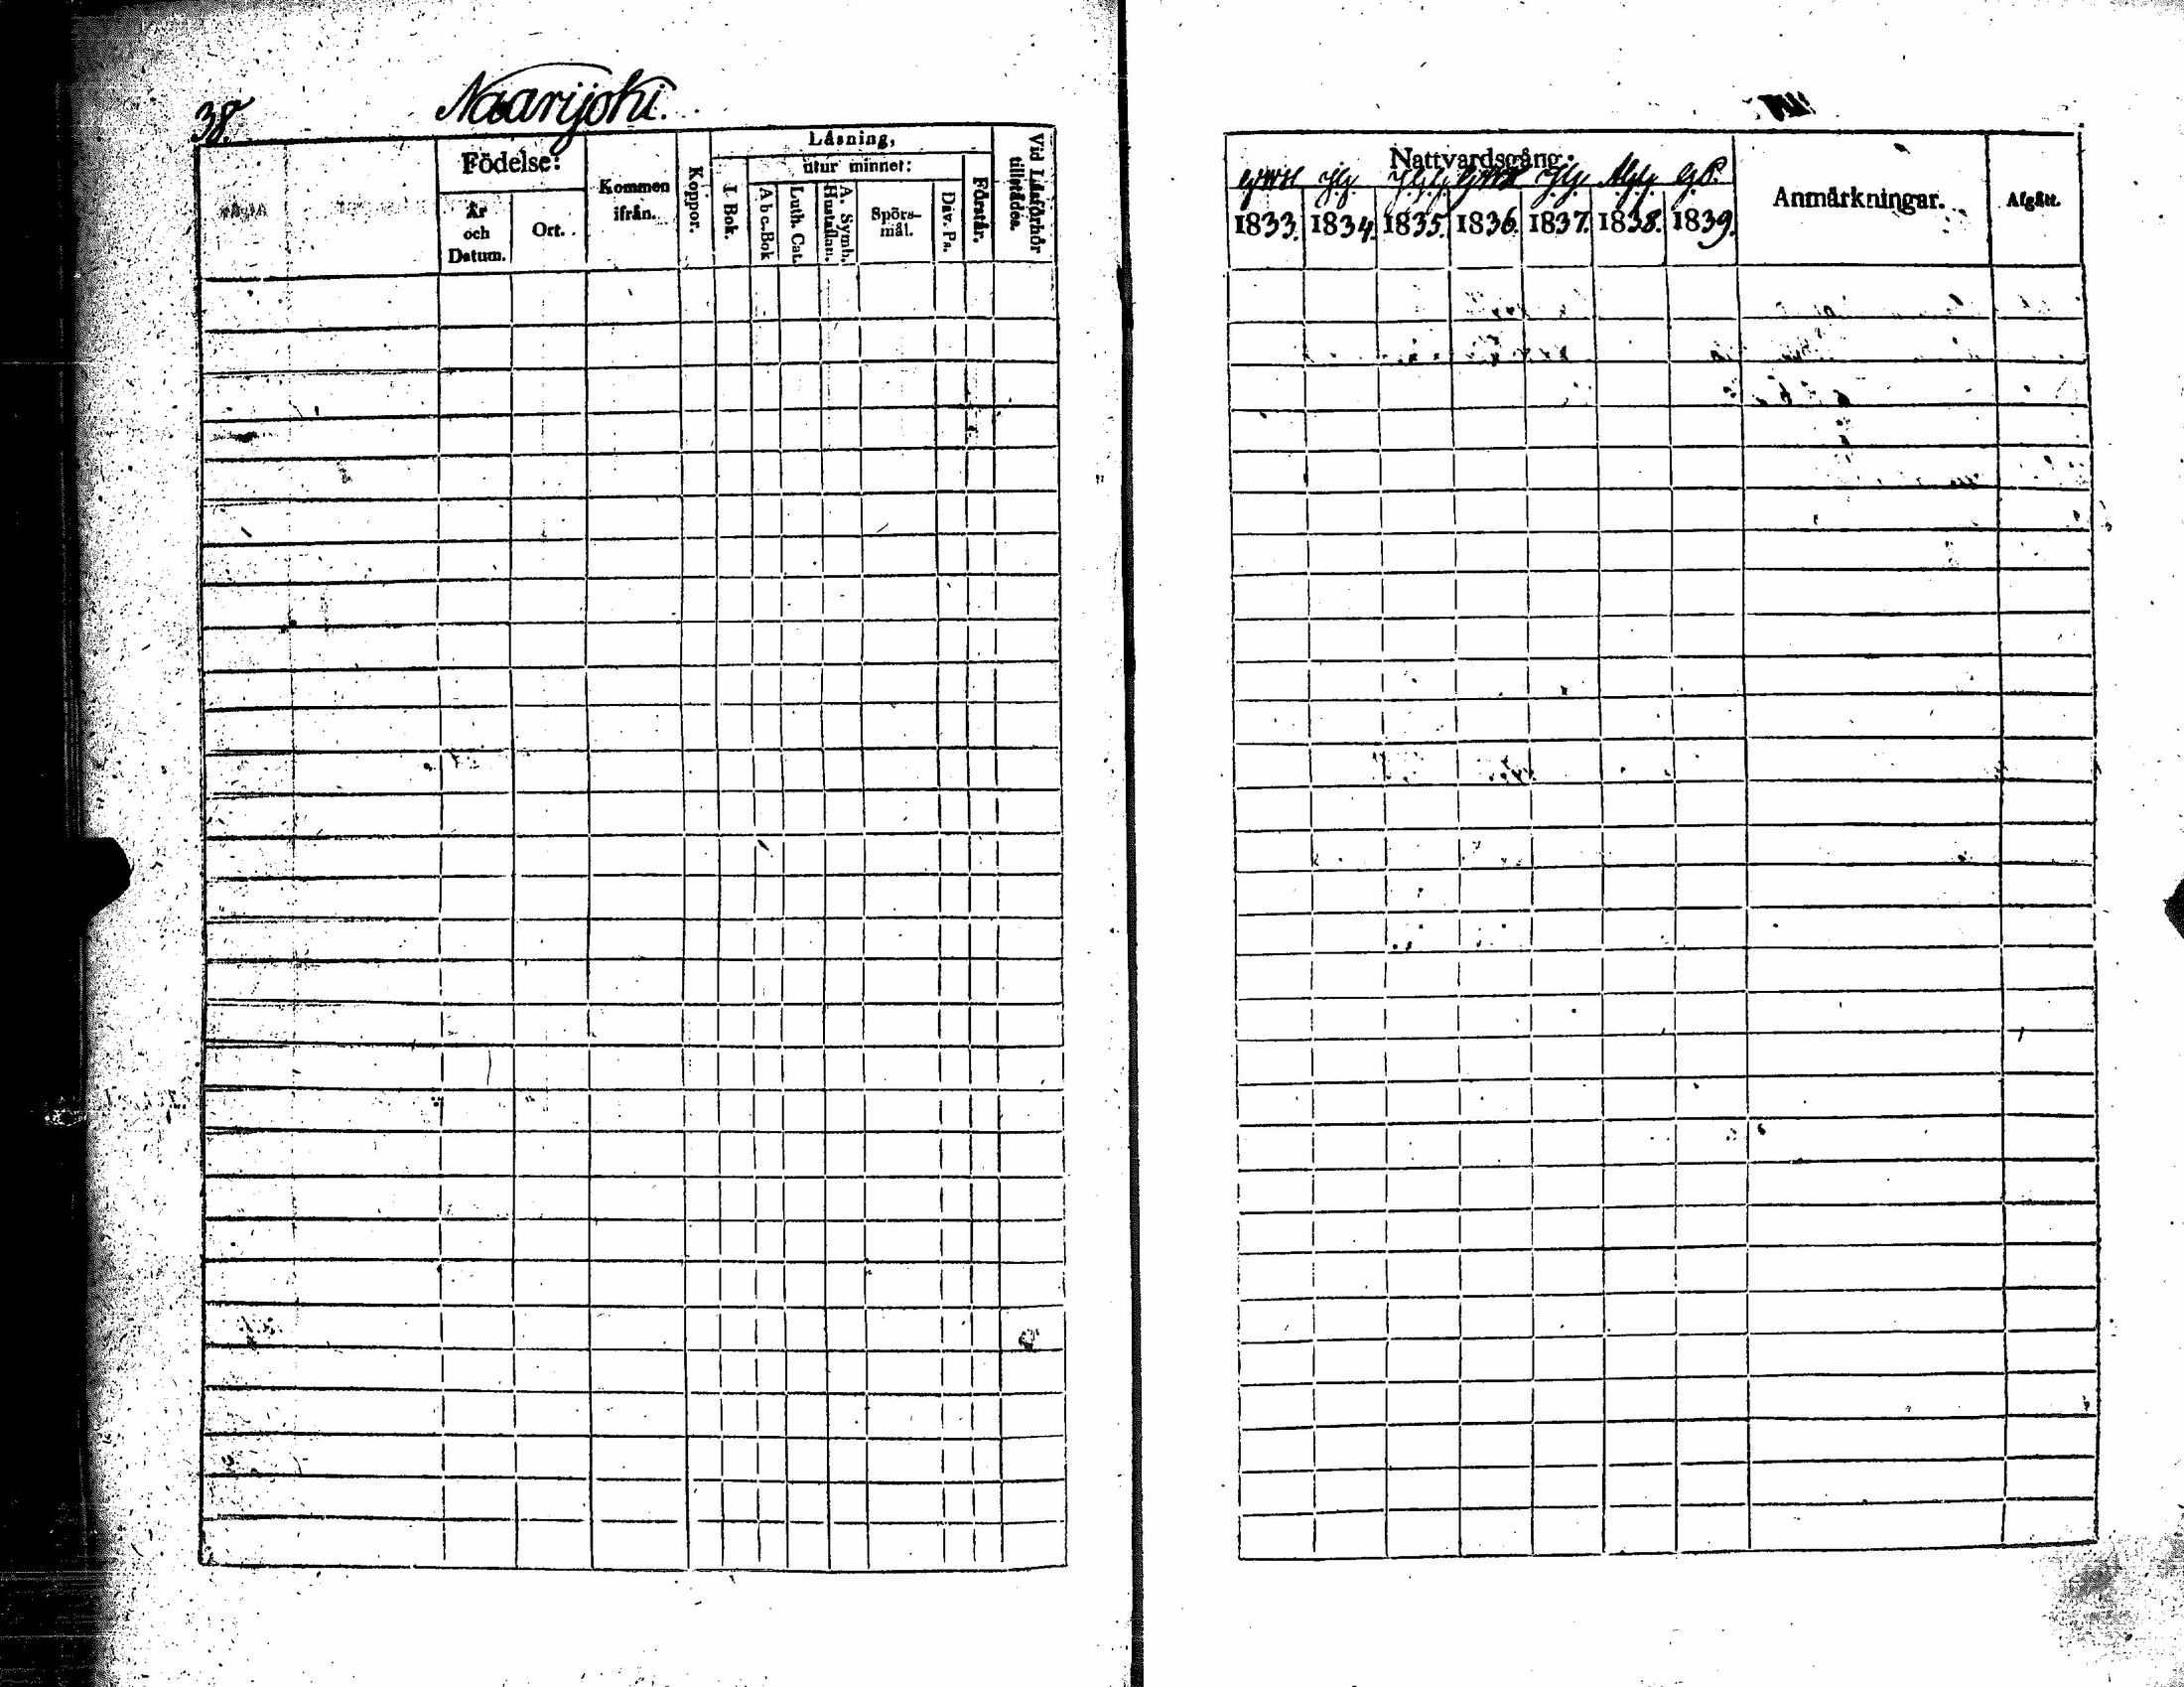 38
Naarijoki.
Födelse:
År och Datum.
Ort.
Kommen ifrån.
Koppor.
Läsning,
utur minnet:
I. Bok.
Abc-Bok
Luth. Cat.
A. Symb. Hustaflan.
Spörs-mål.
Dav. Ps.
Förstår.
Vid Läsförhör tillstädes.
Nattvardsgång:
1833. 1834. 1835. 1836. 1837. 1838. 1839.
Anmärkningar.
Afgått.